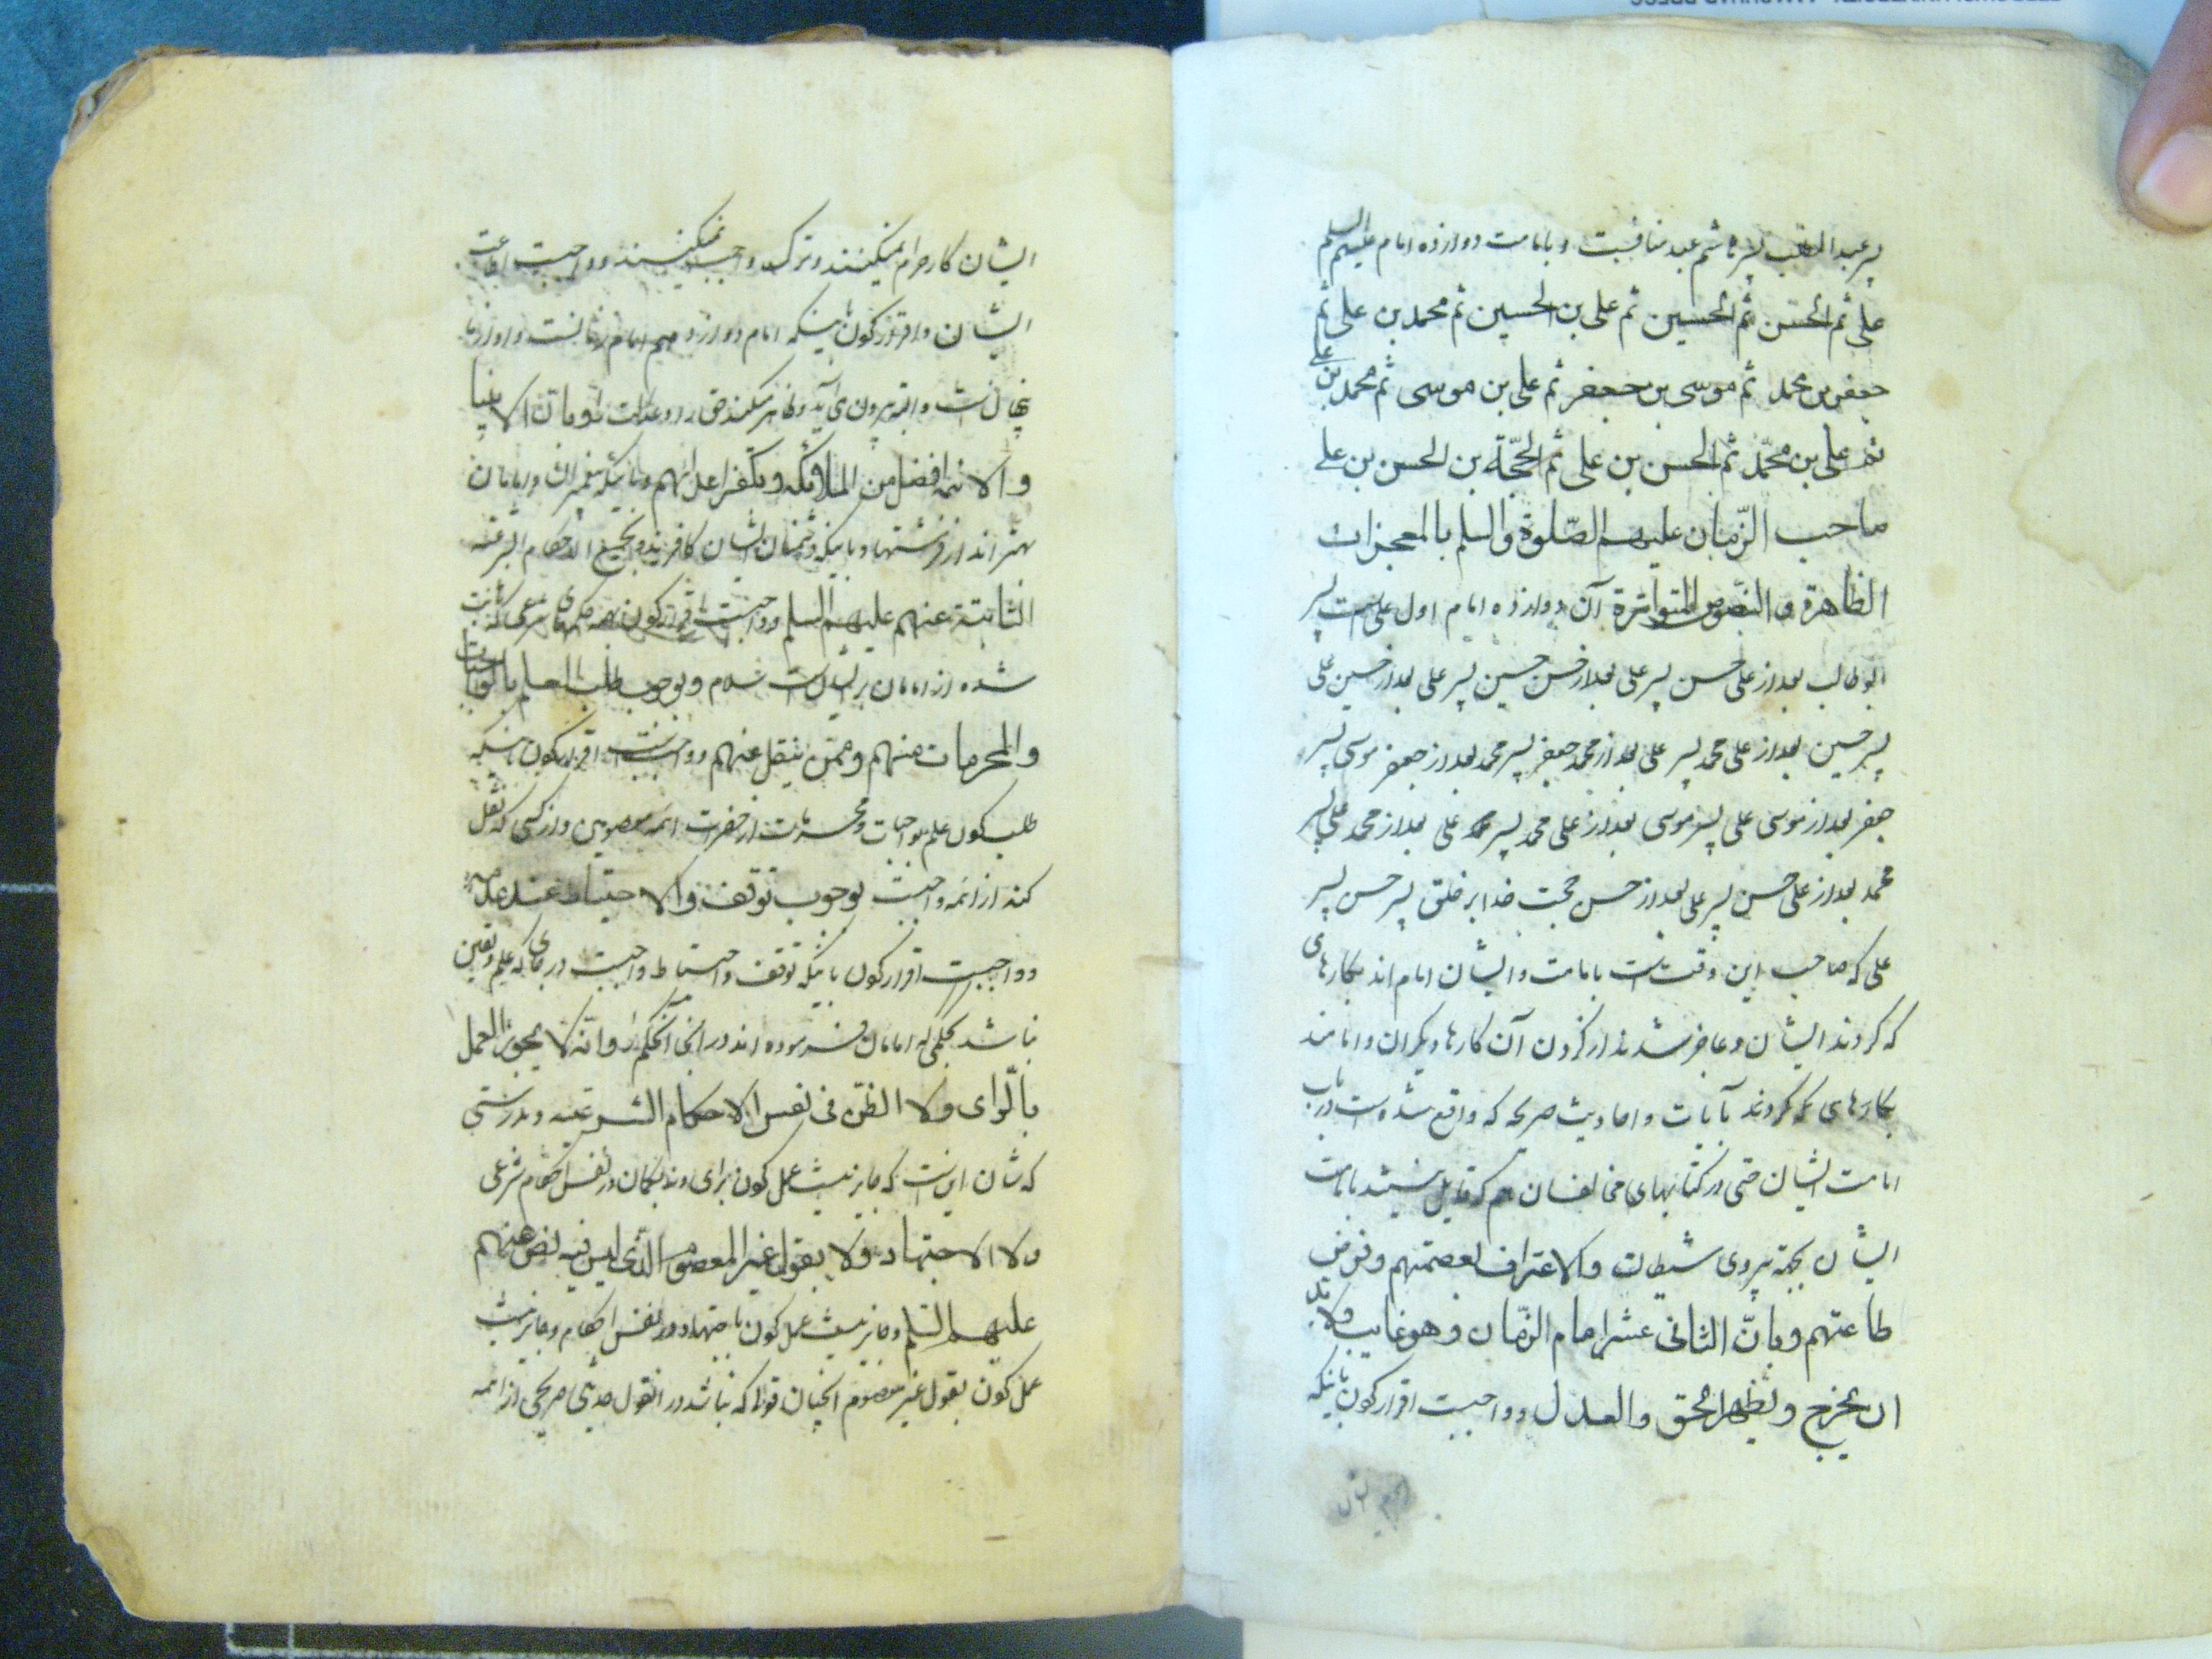 پسر عبد المطلب پسر هاشم عبد منافست و بامامت دوازده امام علیهم السلم
علی ثم الحسن ثم الحسین ثم علی بن الحسین ثم محمد بن علی ثم
جعفر بن محمد ثم موسی بن جعفر ثم علی بن موسی ثم محمد بن علی
ثم علی بن محمّد ثم الحسن بن علی ثم الحجّة بن الحسن بن علی
صاحب الزّمان علیهم الصّلوة والسلم بالمعجزات
الظاهرة و النصوص المتواترة آن دوازده امام اول علی است پسر
ابو طالب بعد از علی حسن پسر علی بعد از حسن حسین پسر علی بعد از حسین علی
پسر حسین بعد از علی محمد پسر علی بعد از محمد جعفر پسر محمد بعد از جعفر موسی پسر
جعفر بعد از موسی علی پسر موسی بعد از علی محمد پسر علی بعد از محمد علی پسر
محمد بعد از علی حسن پسر علی بعد از حسن حجت خدا بر خلق پسر حسن پسر
علی که صاحب این وقت است بامامت و ایشان امام اند بکارهای
که کردند ایشان و عاجز شدند از کردن آن کارها دیگران و امامند
بکارهای که کردند بآیات و احادیث صریحه که واقع شده است در باب
امامت ایشان حتی در کتابهای مخالفان هم که قایل نیستند بامامت
ایشان بجهة پیروی شیطان والاعتراف بعصمتهم و فرض
طاعتهم و بانّ الثانی عشر امام الزّمان و هو غایب ولابد
ان یخرج و یظهر الحق والعدل و واجبست اقرار کردن باینکه
ایشان کار حرام نمیکنند و ترک واجب نمیکنند و واجبست اطاعت
ایشان و اقرار کردن باینکه امام دوازدهم امام زمانست و او از ما
پنهانست و البته بیرون می آید و ظاهر میکند حق را و عدالت را و بان الانبیا
والائمه افضل من الملائکه و بکفر اعدائهم و باینکه پیغمبران و امامان
بهتر اند از فرشتها و باینکه دشمنان ایشان کافرند و بجمیع الاحکام الشرعیه
الثابتة عنهم علیهم السلم و واجبست اقرار کردن بهمه حکمهای شرعی که ثابت
شده از امامان بر ایشان است سلام و بوجوب طلب العلم بالواجبات
والمحرمات منهم و ممّن ینقل عنهم و واجبست اقرار کردن باینکه
طلب کردن علم بواجبات و محرمات از حضرت ائمه معصومین و از کسی که نقل
کند از ائمه واجبست بوجوب توقف والاحتیاط عند عدمه
و واجبست اقرار کردن باینکه توقف و احتیاط واجبست در جای که علم و یقین
نباشد بحکمی که امامان فرموده اند در آنجا آنحکم را و انّه لا یجوز العمل
بالرّای و لا الظنّ فی نفس الاحکام الشرعیه و بدرستی
که شان اینست که جایز نیست عمل کردن برای و نه بگمان در نفس احکام شرعی
ولا الاجتهاد ولا بقول غیر المعصوم الذّی لیس فیه نص عنهم
علیهم السّلم و جایز نیست عمل کردن باجتهاد در نفس احکام و جایز نیست
عمل کردن بقول غیر معصوم آنچنان قولی که نباشد در آنقول حدیثی صریحی از ائمه